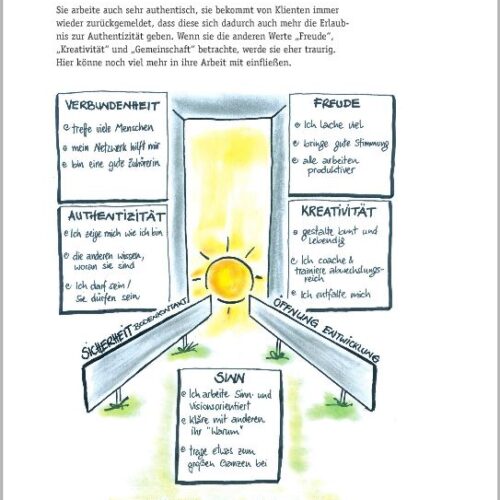 Sie arbeite auch sehr authentisch, sie bekommt von Klienten immer
wieder zurückgemeldet, dass diese sich dadurch auch mehr die Erlaub-
nis zur Authentizität geben. Wenn sie die anderen Werte „Freude“,
„Kreativität“ und „Gemeinschaft“ betrachte, werde sie eher traurig.
Hier könne noch viel mehr in ihre Arbeit mit einfließen.
VERBUNDENHEIT
treffe viele Menschen
mein Netzwerk hilft mir
bin eine gute Zuhörerin
FREUDE
Ich lache viel
bringe gute Stimmung
alle arbeiten
produktiver
AUTHENTIZITÄT
Ich zeige mich wie ich bin
die anderen wissen,
woran sie sind
Ich darf sein /
Sie dürfen sein
KREATIVITÄT
gestalte bunt und
lebendig
Ich coache &
trainiere abwechslungs-
reich
Ich entfalte mich
SICHERHEIT BODENKONTAKT
ÖFFNUNG ENTWICKLUNG
SINN
Ich arbeite Sinn- und
Visionsorientiert
kläre mit anderen
ihr "Warum"
trage etwas zum
großen Ganzen bei